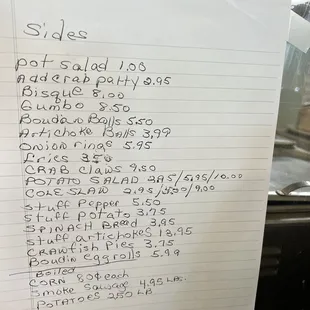 Sides
pot salad 1.00
Add crab patty 2.95
Bisque 8.00
Gumbo 8.50
Boudan Balls 5.50
Artichoke Balls 3.99
Onion rings 5.95
fries 3.50
CRAB claws 9.50
POTATO SALAD 2.95/5.95/10.00
COLE SLAW 2.95/5.50/9.00
Stuff Pepper 5.50
Stuff Potato 3.75
SPINACH Bread 3.95
Stuff artichokes 13.95
CRAWfish Pies 3.75
Boudin Eggrolls 5.99
Boiled
CORN 80¢ each
Smoke Sausage 4.95 LB.
POTATOES 2.50 LB